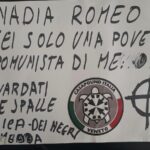 NADIA ROMEO
SEI SOLO UNA POVE
COMUNISTA DI ME...
GUARDATI
LE SPALLE
AMICA DEI NEGRI
CASAPOUND ITALIA
VENETO